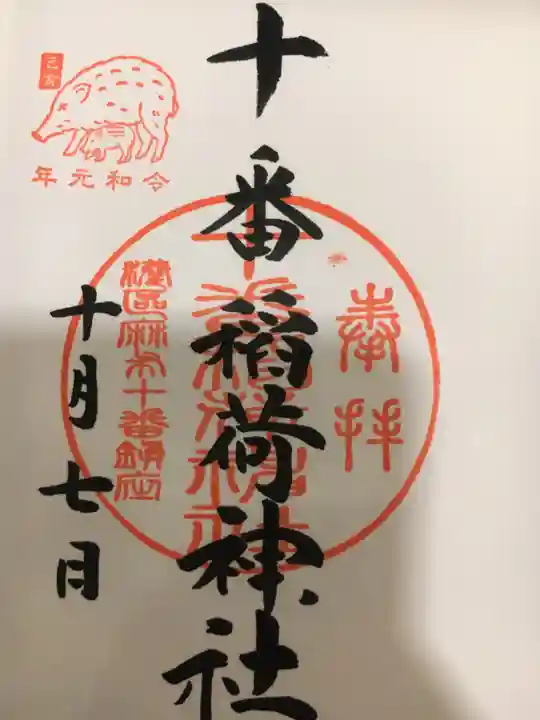 奉拝
十番稲荷神社
十番稲荷神社
港区麻布十番鎮座
己亥
令和元年
十月七日